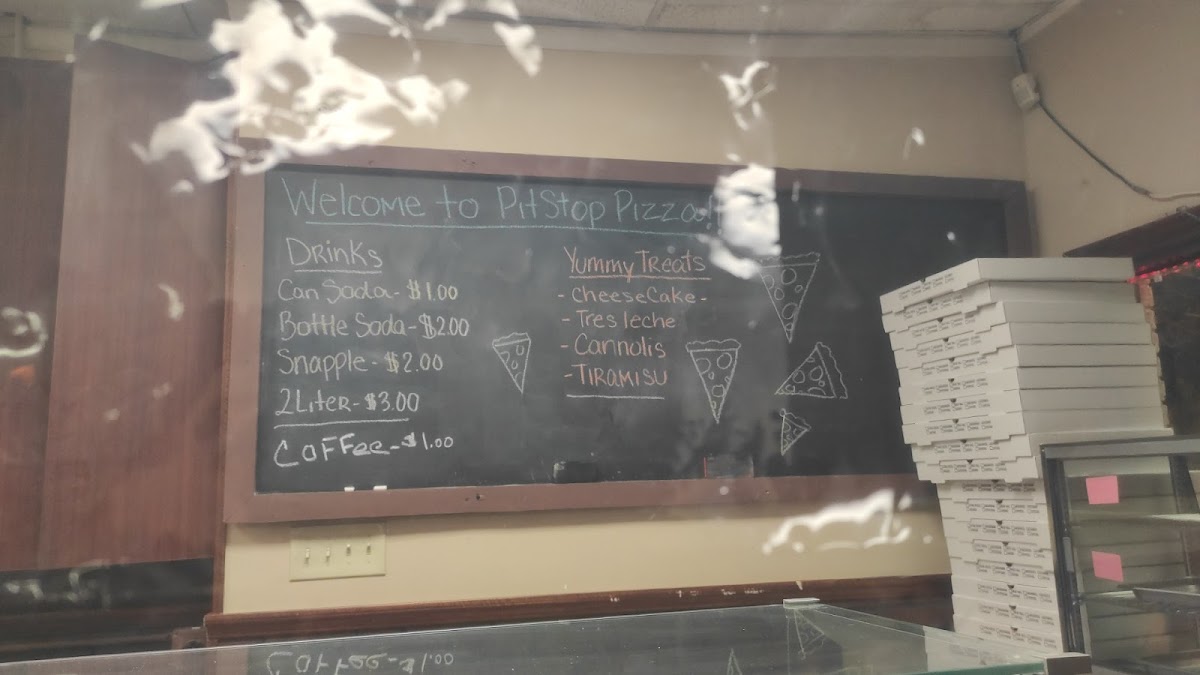 Welcome to PitStop Pizza
Drinks
Can Soda - $1.00
Bottle Soda - $2.00
Snapple - $2.00
2 Liter - $3.00
Coffee - $1.00
Yummy Treats
- CheeseCake -
- Tres leche
- Cannolis
- Tiramisu
Coffee - $1.00